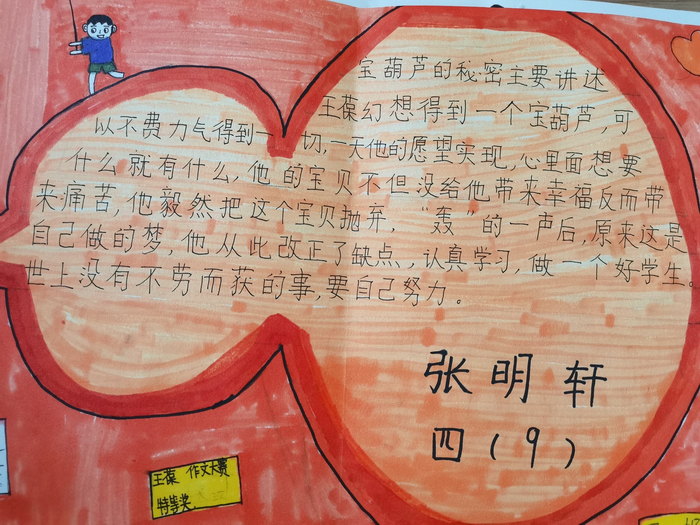 宝葫芦的秘密主要讲述
王葆幻想得到一个宝葫芦,可
以不费力气得到一切,一天他的愿望实现,心里面想要
什么就有什么,他的宝贝不但没给他带来幸福反而带
来痛苦,他毅然把这个宝贝抛弃,“轰”的一声后,原来这是
自己做的梦,他从此改正了缺点,认真学习,做一个好学生。
世上没有不劳而获的事,要自己努力。
张明轩
四(9)
王葆 作文大赛
特等奖